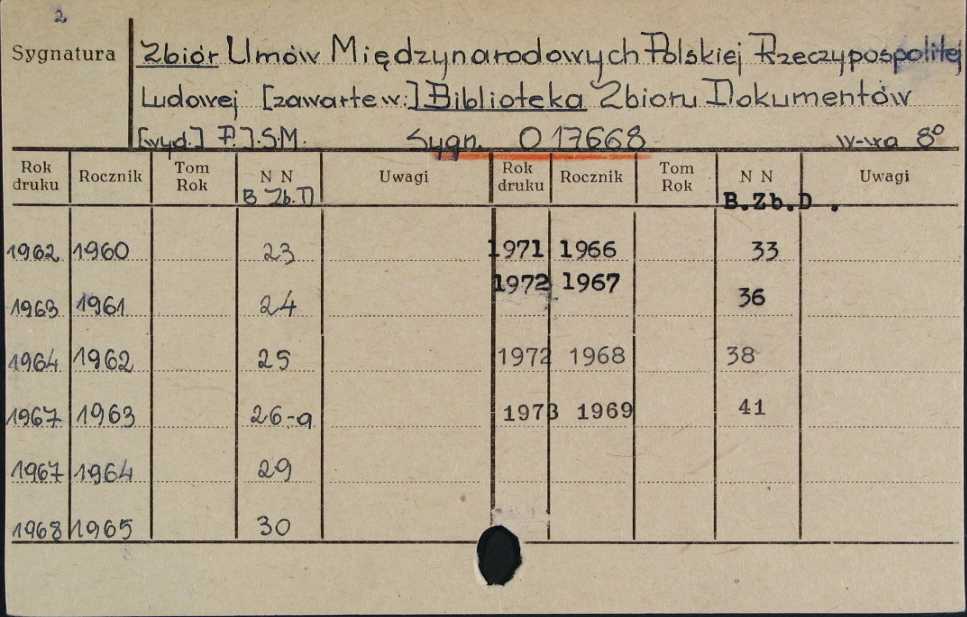 2
Sygnatura
Zbiór Umów Międzynarodowych Polskiej Rzeczypospolitej
Ludowej [zawarte w:] Biblioteka Zbioru Dokumentów
[wyd.] P.I.S.M. Sygn. O 17668 W-wa 8°
Rok druku Rocznik Tom Rok N N Uwagi Rok druku Rocznik Tom Rok N N Uwagi
B Zb. D B.Zb.D.
1962 1960 23 1971 1966 33
1963 1961 24 1972 1967 36
1964 1962 25 1972 1968 38
1967 1963 26-a 1973 1969 41
1967 1964 29
1968 1965 30